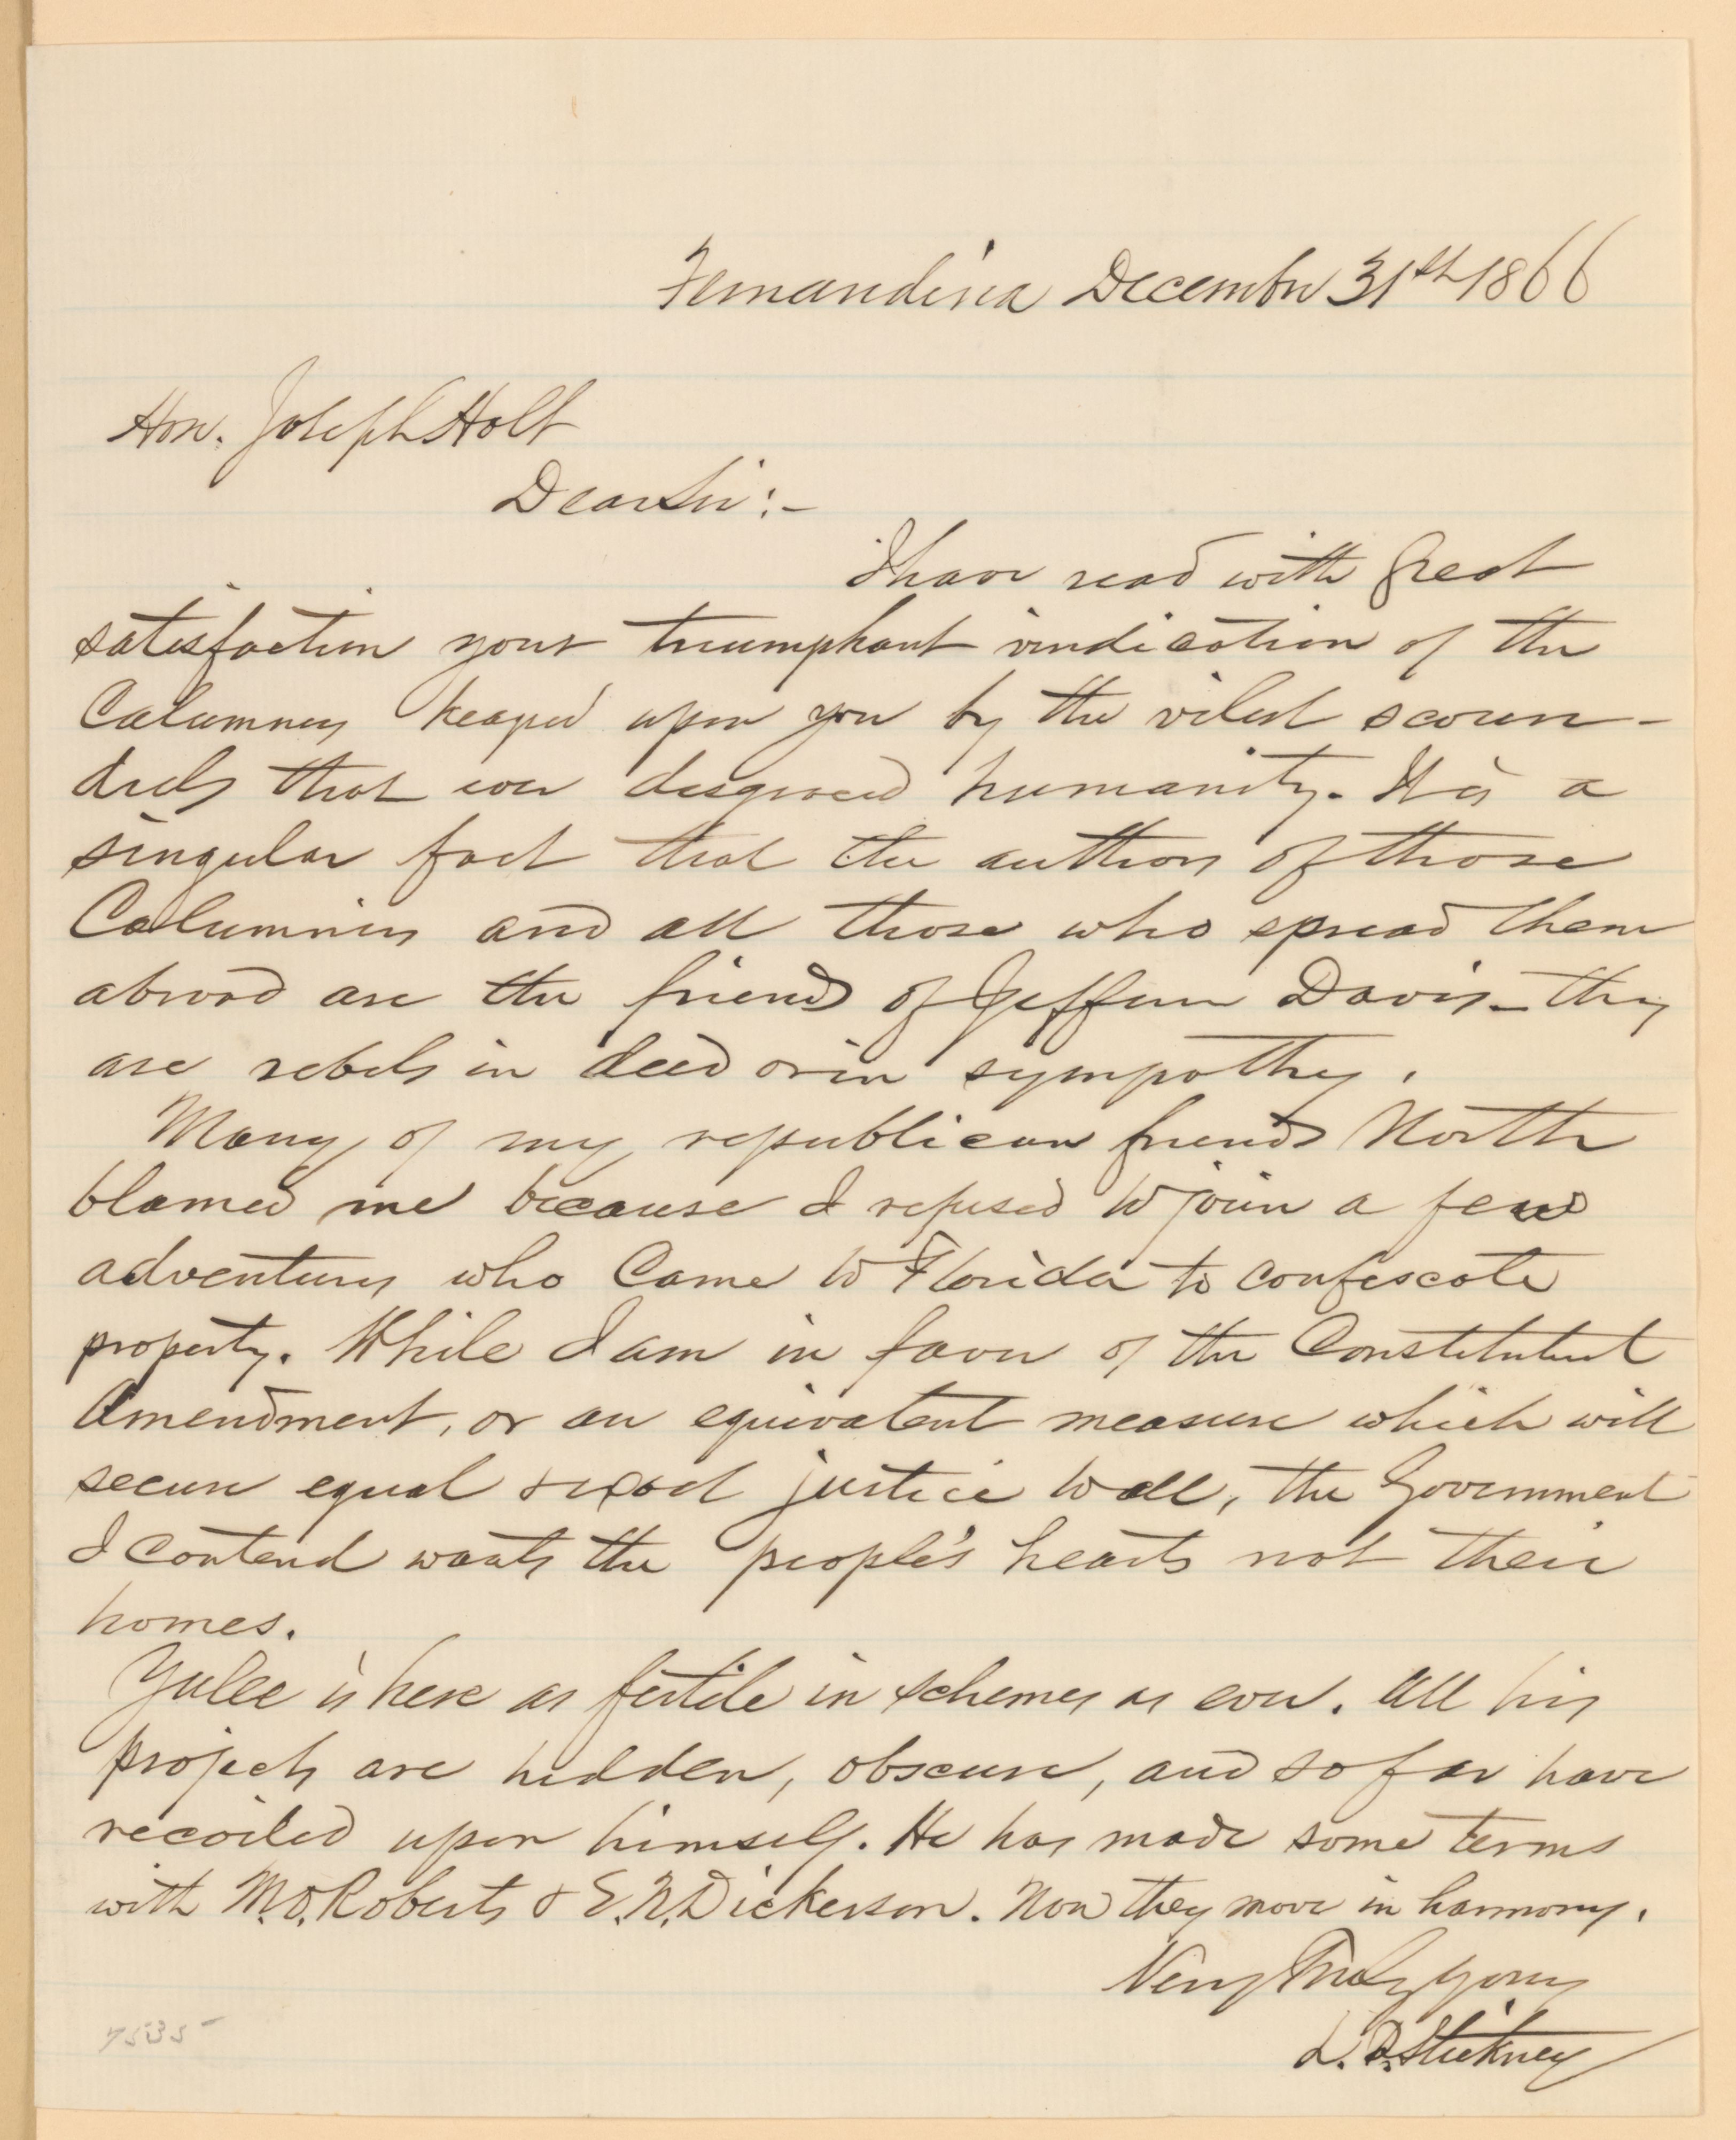 Fernandina December 31st 1866
Hon. Joseph Holt
Dear Sir:-
I have read with great
satisfaction your triumphant vindication of the
Calumnies heaped upon you by the vilest scoun-
drels that ever disgraced humanity. It is a
singular fact that the authors of those
Calumnies and all those who spread them
abroad are the friends of Jefferson Davis - they
are rebels in deed or in sympathy.
Many of my republican friends North
blamed me because I refused to join a few
adventurers who came to Florida to confiscate
property. While I am in favor of the Constitutional
Amendment, or an equivalent measure which will
secure equal & exact justice to all, the Government
I contend wants the people's hearts not their
homes.
Yulee is here as fertile in schemes as ever. All his
projects are hidden, obscure, and so far have
recoiled upon himself. He has made some terms
with M.O. Roberts & E.N. Dickerson. Now they move in harmony.
Very Truly yours
L. D. Stickney